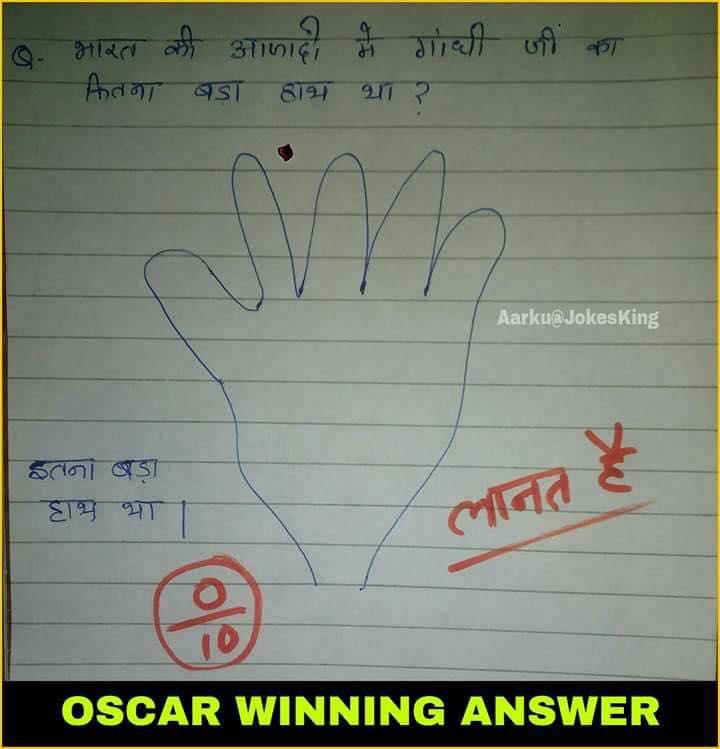 Q. भारत की आजादी मे गांधी जी का
कितना बड़ा हाथ था ?
Aarku@JokesKing
इतना बड़ा
हाथ था |
लानत है
0/10
OSCAR WINNING ANSWER